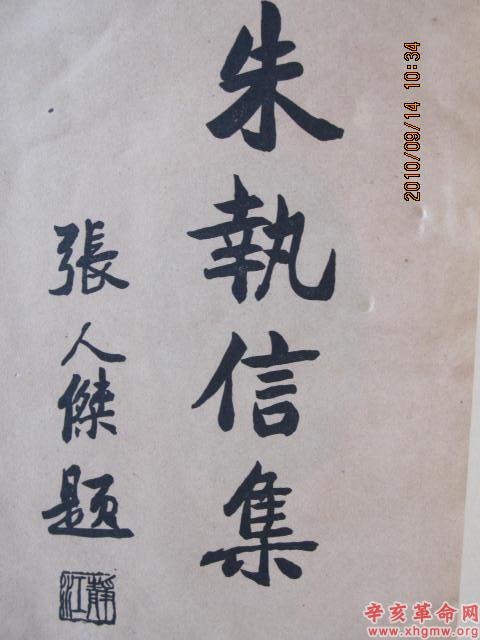 朱執信集
張人傑題
靜江
2010/09/14 10:34
辛亥革命网
www.xhgmw.org